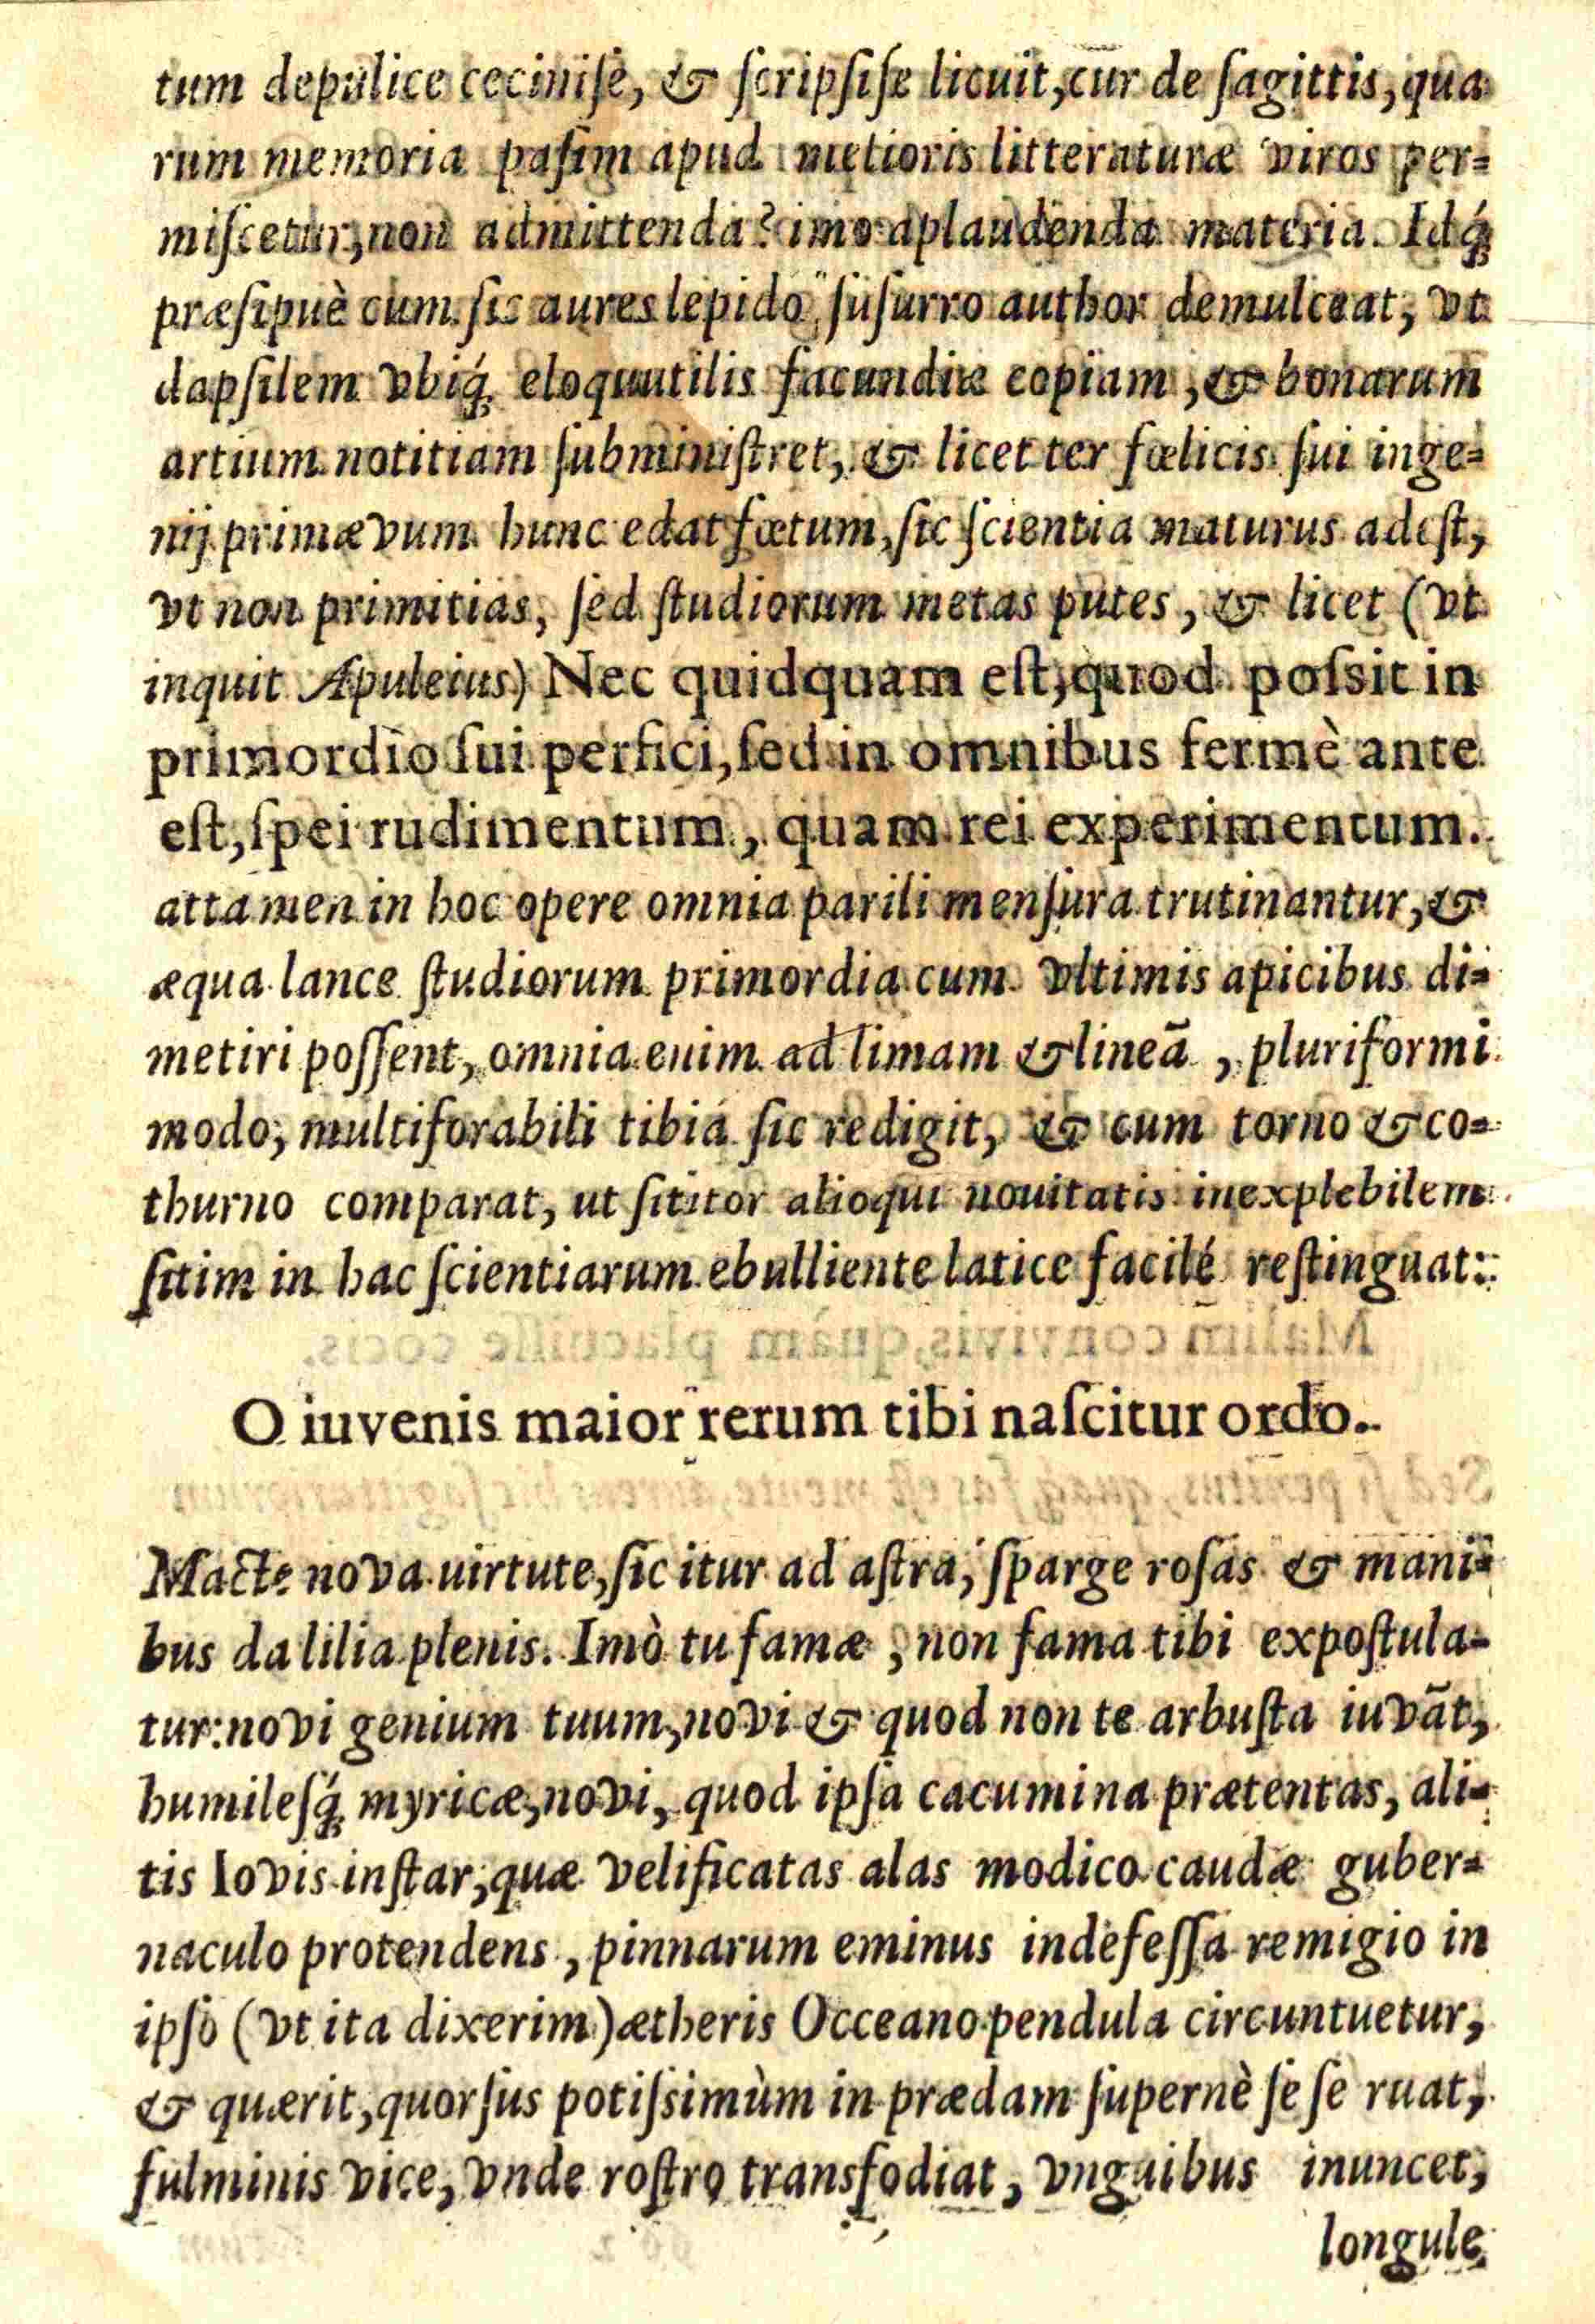 tum depulice ceciniſſe, & ſcripſiſſe licuit, cur de ſagittis, qua
rum memoria paſſim apud melioris litteraturæ viros per=
miſcetur, non admittenda? imo aplaudenda materia. Idq́;
præſipuè cum ſic aures lepidó ſuſurro author demulceat, vt
dapſilem vbiq́; eloquutilis facundiæ copiam, & bonarum
artium notitiam ſubminiſtret, & licet ter fœlicis ſui inge=
nij primævum hunc edat fœtum, ſic ſcientia maturus adeſt,
vt non primitias, ſed ſtudiorum metas putes, & licet (vt
inquit Apuleius) Nec quidquam eſt, quod poſsit in
primordio ſui perfici, ſed in omnibus fermè ante
eſt, ſpei rudimentum, quam rei experimentum.
attamen in hoc opere omnia parili menſura trutinantur, &
æqua lance ſtudiorum primordia cum vltimis apicibus di=
metiri poſſent, omnia enim ad limam & lineā, pluriformi
modo, multiforabili tibiá ſic redigit, & cum torno & co=
thurno comparat, ut ſititor alioqui nouitatis inexplebilem
ſitim in hac ſcientiarum ebulliente latice facilé reſtinguat:
O iuvenis maior rerum tibi naſcitur ordo.
Macte nova uirtute, ſic itur ad aſtra, ſparge roſas & mani=
bus da lilia plenis. Imò tu famæ, non fama tibi expoſtula=
tur: novi genium tuum, novi & quod non te arbuſta iuvāt,
humileſq́; myricæ, novi, quod ipſa cacumina prætentas, ali=
tis Iovis inſtar, quæ velificatas alas modico caudæ guber=
naculo protendens, pinnarum eminus indefeſſa remigio in
ipſo (vt ita dixerim) ætheris Occeano pendula circuntuetur,
& quærit, quorſus potiſsimùm in prædam ſupernè ſe ſe ruat,
fulminis vice, vnde roſtro transfodiat, vnguibus inuncet,
longule